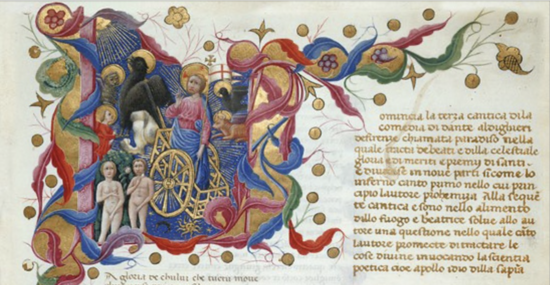 omincia la terza cantica dila
comedia di dante aldighieri
fiorentine chiamata paradiso nella
quale tracta de beati e dilla celestiale
gloria e di meriti e premij di santi
e diuidese in noue parti sicome lo
inferno canto primo nello cui prin
cipio lautore prohemiza alla seque
te cantica e sono nello alimento
dillo fuoco e beatrice solue allo au
tore una questione nello quale cāto
lautore promecte di tractare le
cose diuine inuocando la scientia
poetica cioe apollo idio dilla sapiē
A gloria de cholui che tucto moue